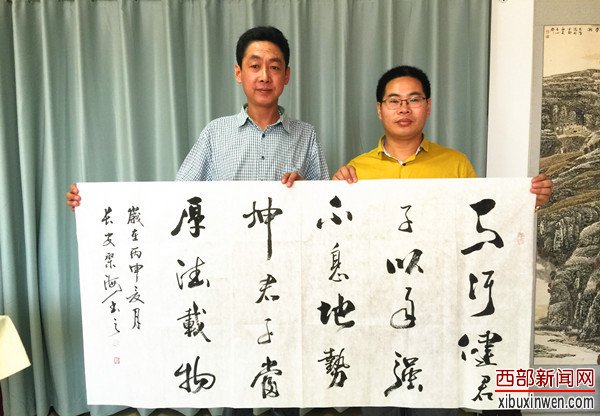 天行健君
子以自強
不息地勢
坤君子當
厚德載物
歲在丙申夏月
長安梁 書之
西部新闻网
xibuxinwen.com